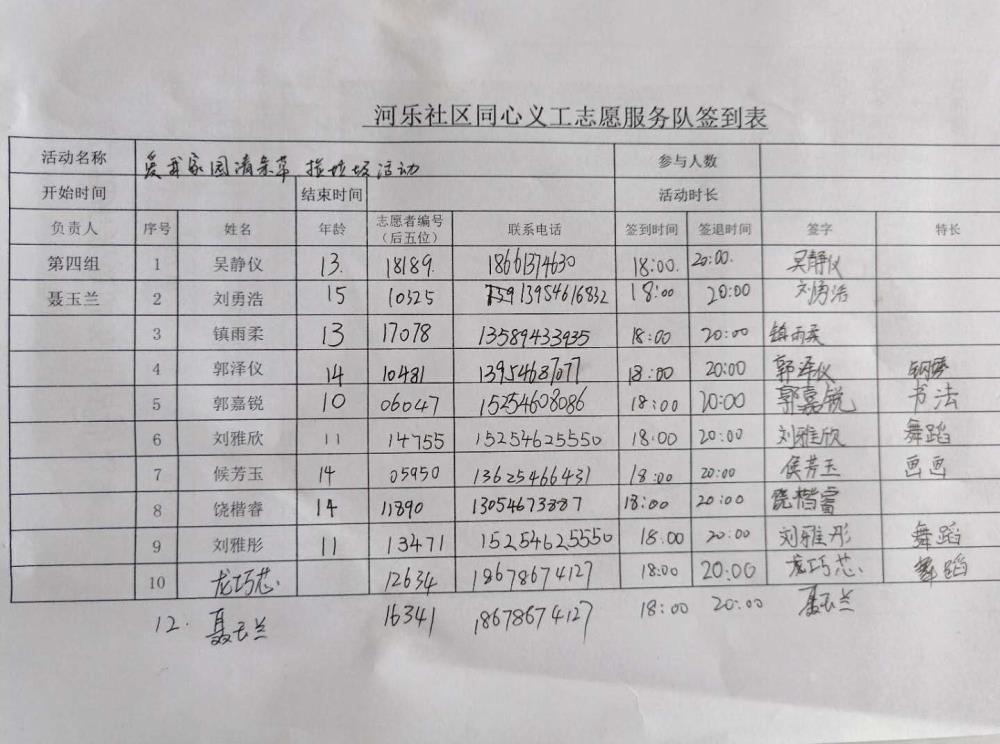 河乐社区同心义工志愿服务队签到表
活动名称 爱我家园清杂草 捡垃圾活动 参与人数
开始时间 结束时间 活动时长
负责人 序号 姓名 年龄 志愿者编号（后五位） 联系电话 签到时间 签退时间 签字 特长
第四组 1 吴静仪 13. 18189. 18661374630 18:00. 20:00. 吴静仪
聂玉兰 2 刘勇浩 15 10325 13954616832 18:00 20:00 刘勇浩
3 镇雨柔 13 17078 13589433935 18:00 20:00 镇雨柔
4 郭泽仪 14 10481 13954687077 18:00 20:00 郭泽仪 钢琴
5 郭嘉锐 10 06047 15254608086 18:00 20:00 郭嘉锐 书法
6 刘雅欣 11 14755 15254625550 18:00 20:00 刘雅欣 舞蹈
7 候芳玉 14 05950 13625466431 18:00 20:00 侯芳玉 画画
8 饶楷睿 14 11890 13054673887 18:00 20:00 饶楷睿
9 刘雅彤 11 13471 15254625550 18:00 20:00 刘雅彤 舞蹈
10 龙巧芯. 12634 18678674127 18:00 20:00 龙巧芯. 舞蹈
12. 聂玉兰 16341 18678674127 18:00 20:00 聂玉兰